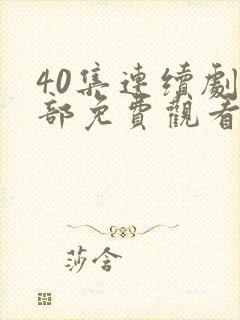 40集連續劇
部免費觀看
莎含